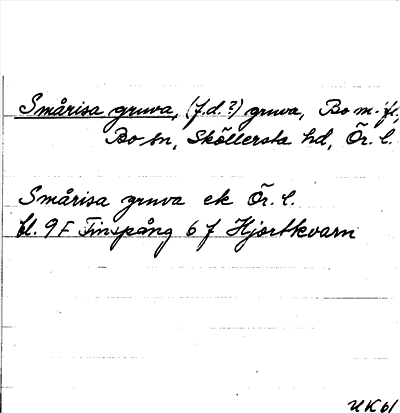 Smårisa gruva, (f.d.?) gruva, Bo m. fl.,
Bo sn, Sköllersta hd, Ör. l.
Smårisa gruva ek Ör. l.
bl. 9F Finspång 6 f Hjortkvarn
UK61